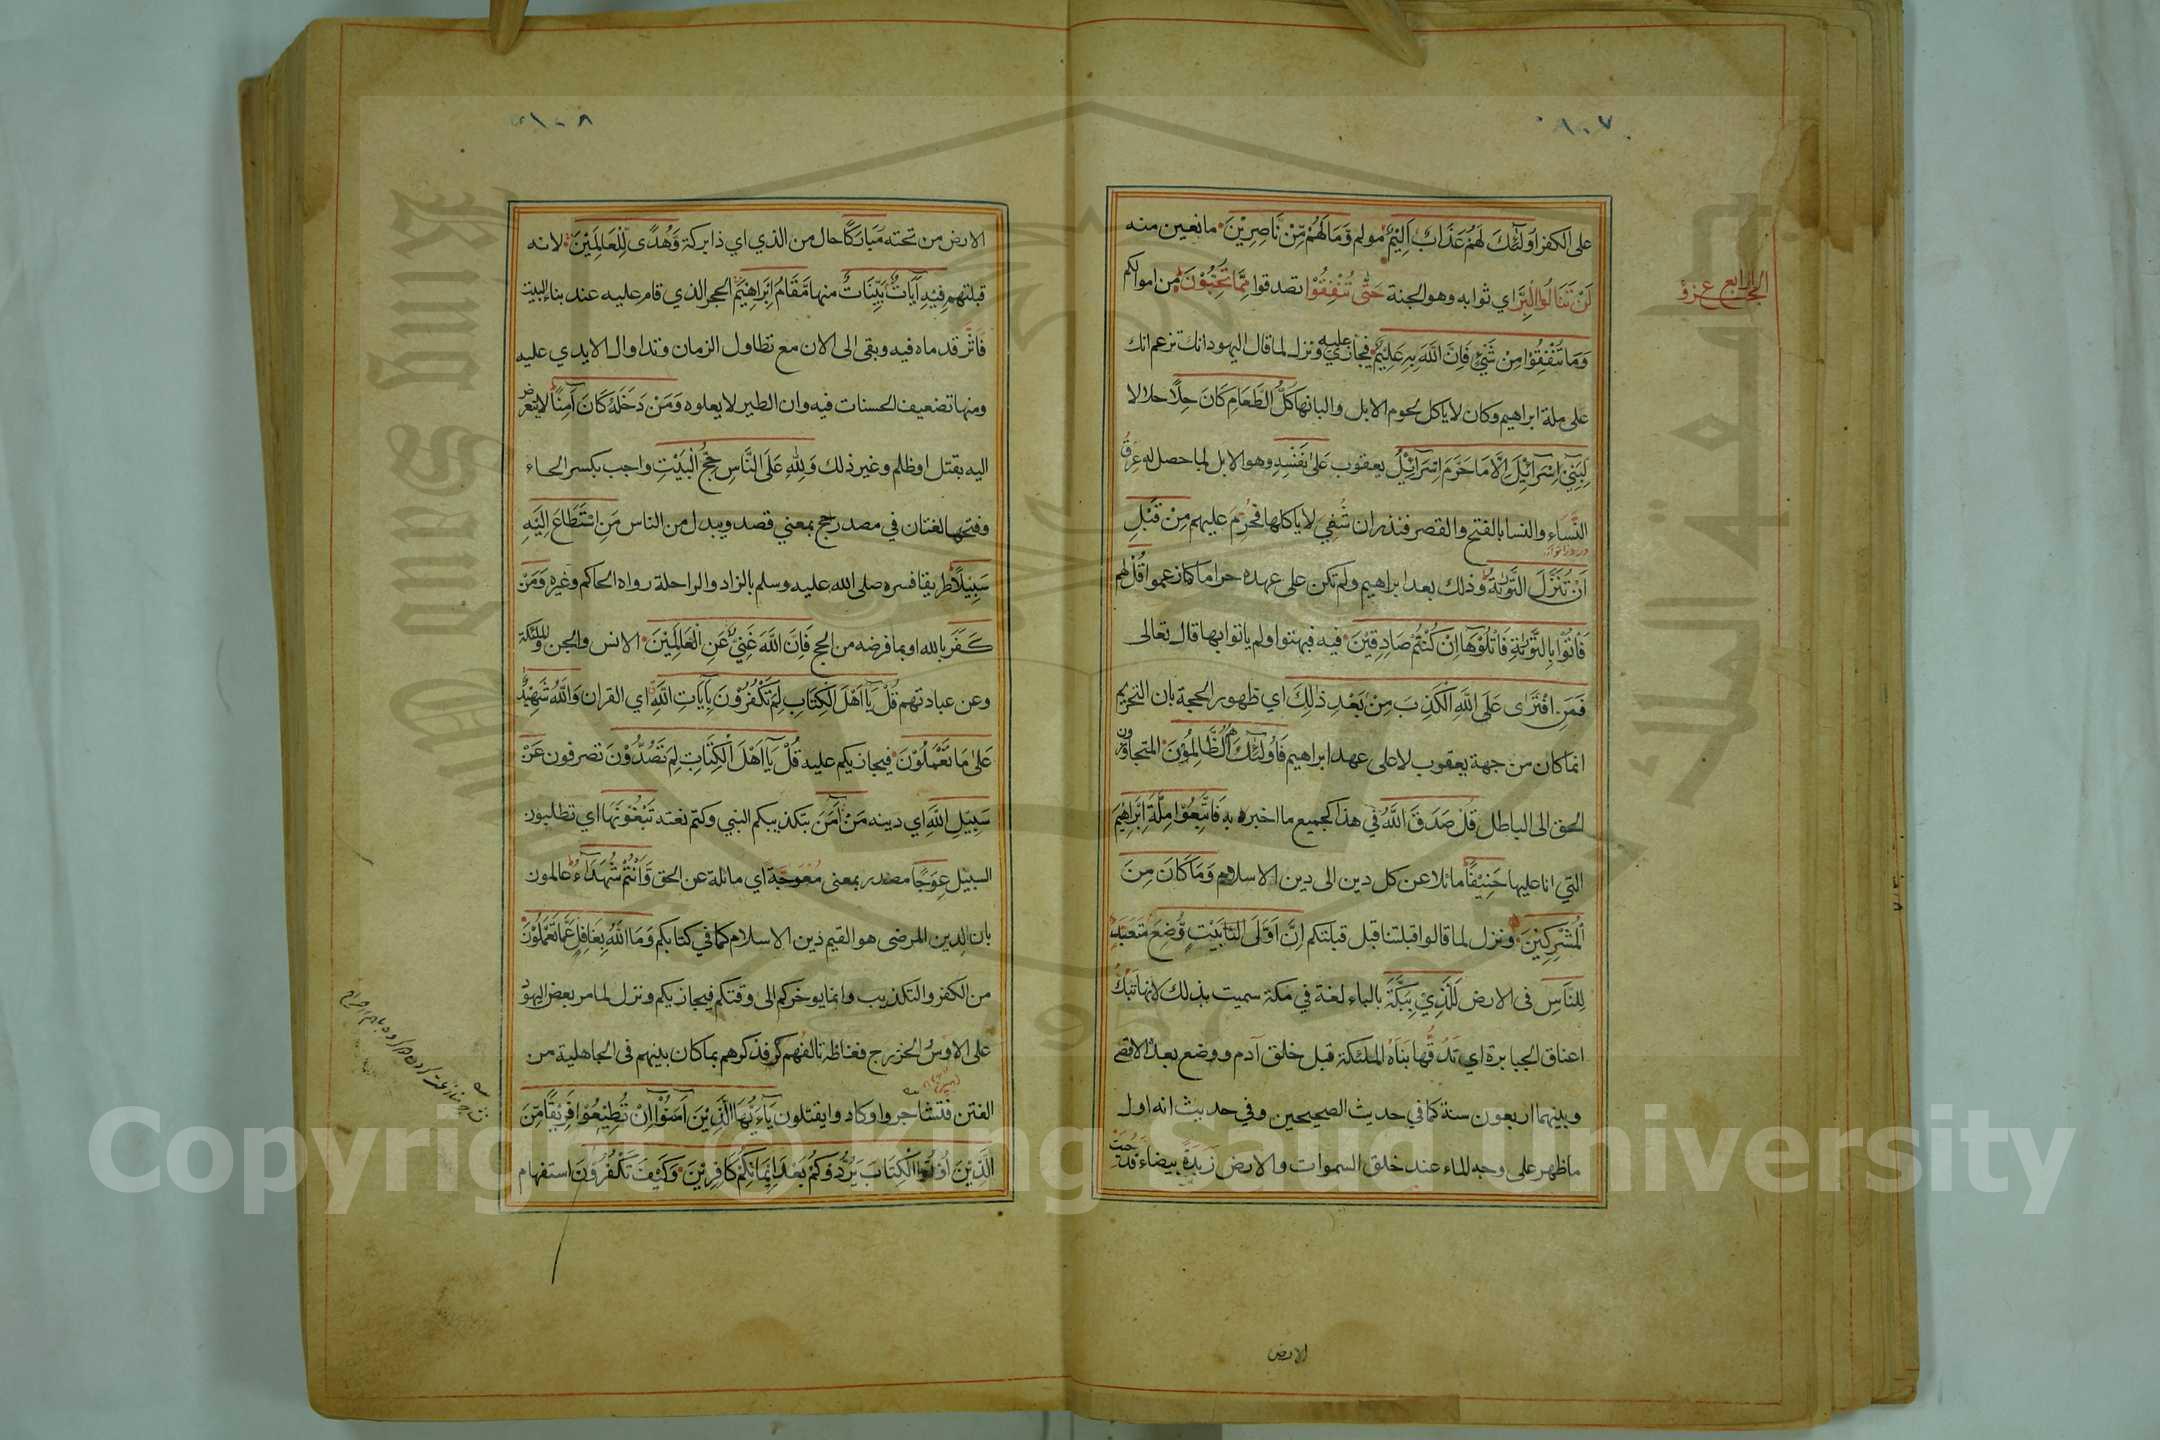 ١٠٧
الجزء الرابع
على الكفر اُولٰٓئِكَ لَهُمْ عَذَابٌ اَلِيْمٌ مولم وَّمَا لَهُمْ مِّنْ نَّاصِرِيْنَ مانعين منه
لَنْ تَنَالُوا الْبِرَّ اي ثوابه وهو الجنة حَتّٰى تُنْفِقُوْا تصدقوا مِمَّا تُحِبُّوْنَ من اموالكم
وَمَا تُنْفِقُوْا مِنْ شَيْءٍ فَاِنَّ اللّٰهَ بِهٖ عَلِيْمٌ فيجازي عليه ونزل لما قال اليهود انك تزعم انك
على ملة ابراهيم وكان لا ياكل لحوم الابل والبانها كُلُّ الطَّعَامِ كَانَ حِلًّا حلالا
لِّبَنِيْٓ اِسْرَآئِيْلَ اِلَّا مَا حَرَّمَ اِسْرَآئِيْلُ يعقوب عَلٰى نَفْسِهٖ وهو الابل لما حصل له عرق
النَّساء والنسا بالفتح والقصر فنذر ان شُفِيَ لا ياكلها فحُرِّم عليهم مِنْ قَبْلِ
اَنْ تُنَزَّلَ التَّوْرٰىةُ وذلك بعد ابراهيم ولم تكن على عهده حراما كما زعموا قُلْ لهم
فَاْتُوْا بِالتَّوْرٰىةِ فَاتْلُوْهَآ اِنْ كُنْتُمْ صَادِقِيْنَ فيه فبهتوا ولم ياتوا بها قال تعالى
فَمَنِ افْتَرٰى عَلَى اللّٰهِ الْكَذِبَ مِنْۢ بَعْدِ ذٰلِكَ اي ظهور الحجة بان التحريم
انما كان من جهة يعقوب لا على عهد ابراهيم فَاُولٰٓئِكَ هُمُ الظَّالِمُوْنَ المتجاوزون
الحق الى الباطل قُلْ صَدَقَ اللّٰهُ في هذا كجميع ما اخبر به فَاتَّبِعُوْا مِلَّةَ اِبْرَاهِيْمَ
التي انا عليها حَنِيْفًا مائلا عن كل دين الى دين الاسلام وَمَا كَانَ مِنَ
الْمُشْرِكِيْنَ ونزل لما قالوا قبلتنا قبل قبلتكم اِنَّ اَوَّلَ بَيْتٍ وُّضِعَ متعبد
لِلنَّاسِ فى الارض لَلَّذِيْ بِبَكَّةَ بالباء لغة في مكة سميت بذلك لانها تَبُكُّ
اعناق الجبابرة اي تدقها بناه الملئكة قبل خلق آدم ووضع بعده الاقصى
وبينهما اربعون سنة كما في حديث الصحيحين وفي حديث انه اول
ما ظهر على وجه الماء عند خلق السموات والارض زبدة بيضاء فدحيت
الارض
١٠٨
الارض من تحته مُبَارَكًا حال من الذي اي ذا بركة وَّهُدًى لِّلْعَالَمِيْنَ لانه
قبلتهم فِيْهِ اٰيَاتٌۢ بَيِّنَاتٌ منها مَّقَامُ اِبْرَاهِيْمَ الحجر الذي قام عليه عند بناء البيت
فاثر قدماه فيه وبقى الى الان مع تطاول الزمان وتداول الايدي عليه
ومنها تضعيف الحسنات فيه وان الطير لا يعلوه وَمَنْ دَخَلَهٗ كَانَ اٰمِنًا لا يتعرض
اليه بقتل او ظلم وغير ذلك وَلِلّٰهِ عَلَى النَّاسِ حِجُّ الْبَيْتِ واجب بكسر الحاء
وفتحها لغتان في مصدر حج بمعني قصد ويبدل من الناس مَنِ اسْتَطَاعَ اِلَيْهِ
سَبِيْلًا طريقا فسره صلى الله عليه وسلم بالزاد والراحلة رواه الحاكم وغيره وَمَنْ
كَفَرَ بالله او بما فرضه من الحج فَاِنَّ اللّٰهَ غَنِيٌّ عَنِ الْعَالَمِيْنَ الانس والجن والملئكة
وعن عبادتهم قُلْ يَا اَهْلَ الْكِتَابِ لِمَ تَكْفُرُوْنَ بِاٰيَاتِ اللّٰهِ اي القران وَاللّٰهُ شَهِيْدٌ
عَلٰى مَا تَعْمَلُوْنَ فيجازيكم عليه قُلْ يَا اَهْلَ الْكِتَابِ لِمَ تَصُدُّوْنَ تصرفون عَنْ
سَبِيْلِ اللّٰهِ اي دينه مَنْ اٰمَنَ بتكذيبكم النبي وكتم نعته تَبْغُوْنَهَا اي تطلبون
السبيل عِوَجًا مصدر بمعنى معوجة اي مائلة عن الحق وَّاَنْتُمْ شُهَدَآءُ عالمون
بان الدين المرضى هو القيم دين الاسلام كما في كتابكم وَمَا اللّٰهُ بِغَافِلٍ عَمَّا تَعْمَلُوْنَ
من الكفر والتكذيب وانما يوخركم الى وقتكم فيجازيكم ونزل لما مر بعض اليهود
على الاوس الخزرج فغاظه تالفهم فذكروهم بما كان بينهم فى الجاهلية من
الفتن فتشاجروا وكادوا يقتتلون يَآ اَيُّهَا الَّذِيْنَ اٰمَنُوْٓا اِنْ تُطِيْعُوْا فَرِيْقًا مِّنَ
الَّذِيْنَ اُوْتُوا الْكِتَابَ يَرُدُّوْكُمْ بَعْدَ اِيْمَانِكُمْ كَافِرِيْنَ وَكَيْفَ تَكْفُرُوْنَ استفهام
King Saud University
Copyright © King Saud University